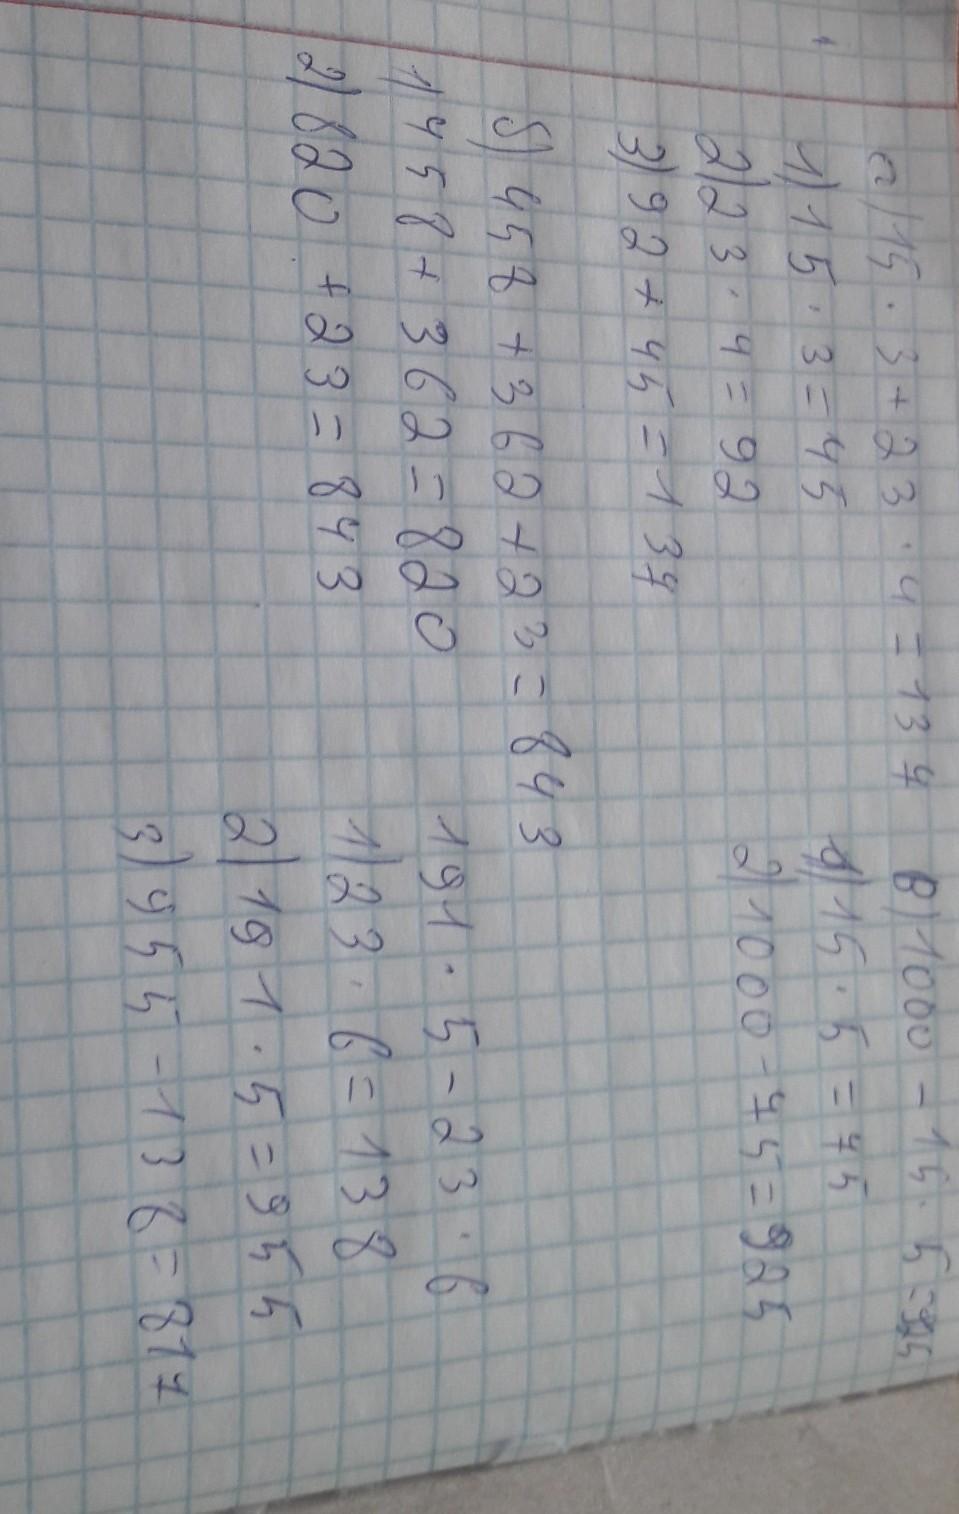 а) 15 · 3 + 23 · 4 = 137
1) 15 · 3 = 45
2) 23 · 4 = 92
3) 92 + 45 = 137
б) 458 + 362 + 23 = 843
1) 458 + 362 = 820
2) 820 + 23 = 843
в) 1000 - 15 · 5 = 925
1) 15 · 5 = 75
2) 1000 - 75 = 925
191 · 5 - 23 · 6
1) 23 · 6 = 138
2) 191 · 5 = 955
3) 955 - 138 = 817